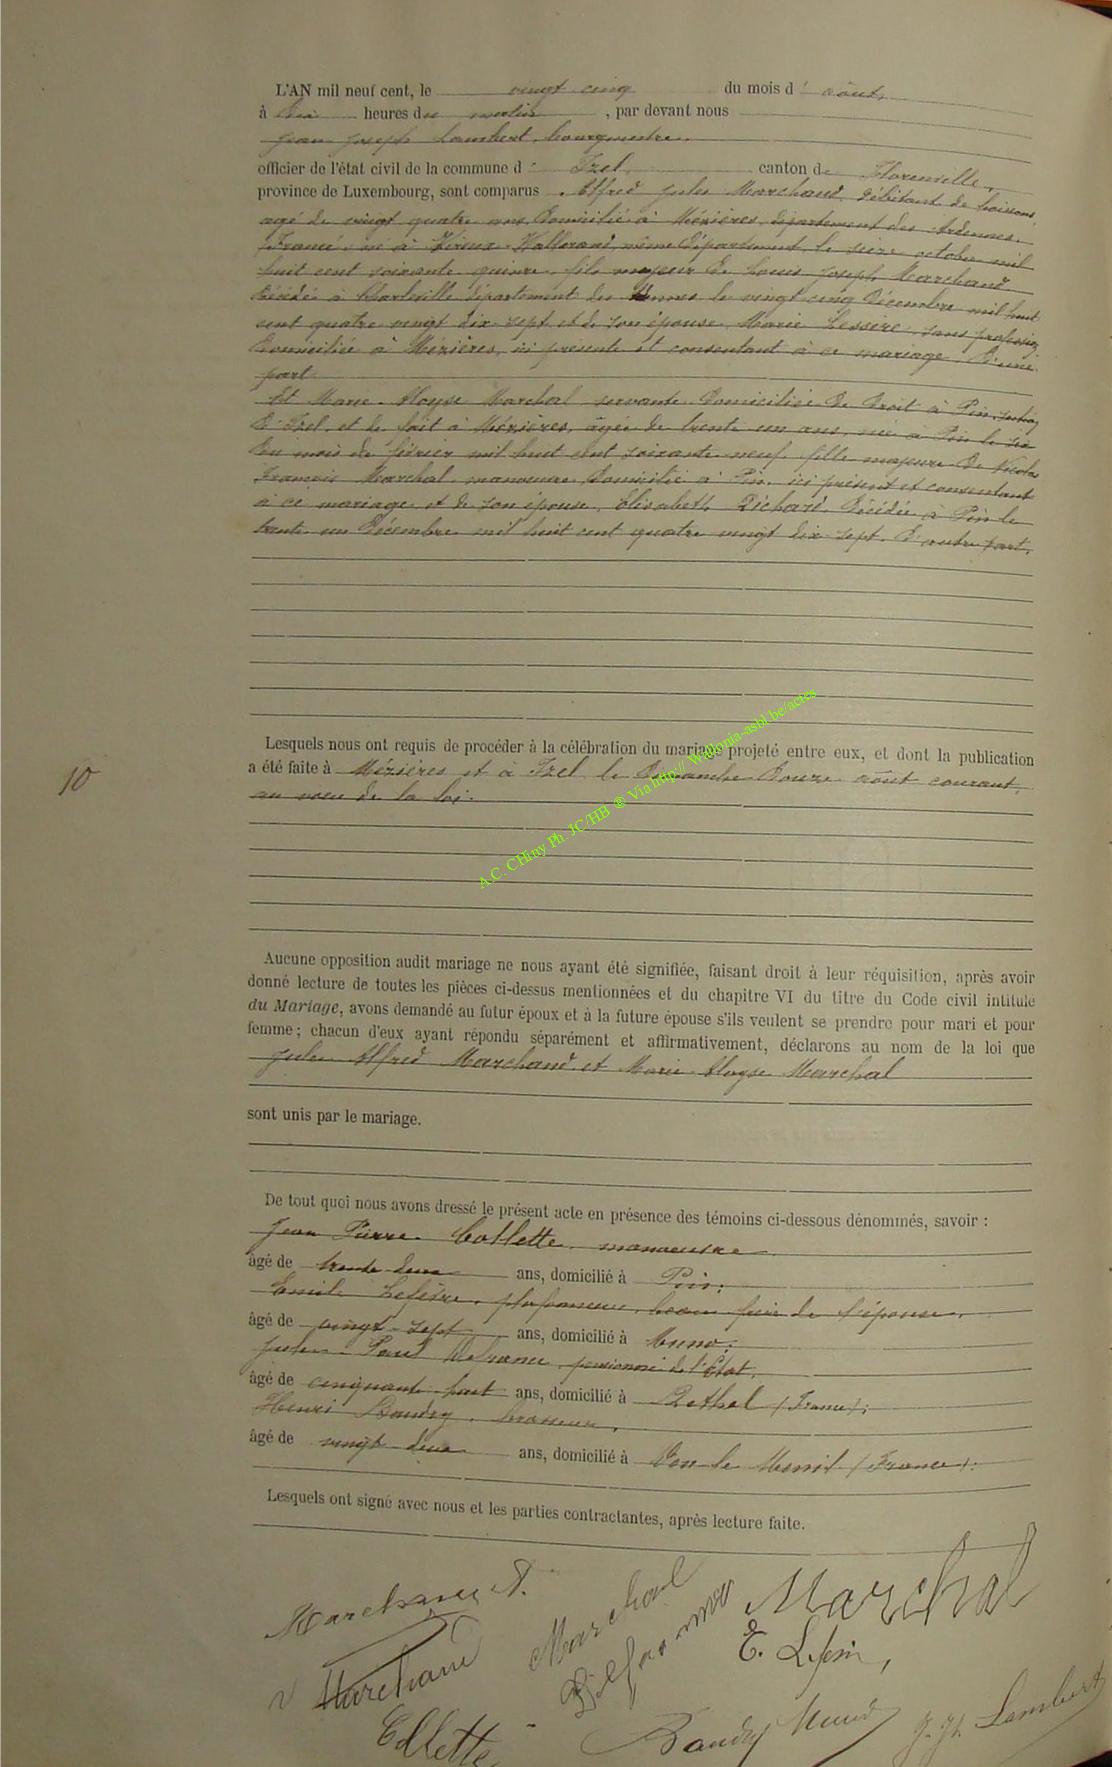 L'AN mil neuf cent, le vingt cinq du mois d' août,
à dix heures du matin, par devant nous
Jean Joseph Lambert, bourgmestre,
officier de l'état civil de la commune d' Izel, canton de Florenville,
province de Luxembourg, sont comparus Alfred Jules Marchand, débitant de boissons
agé de vingt quatre ans, domicilié à Mézières, département des Ardennes,
France, né à Vireux-Wallerand, même département, le seize octobre mil
huit cent soixante quinze, fils majeur de Louis Joseph Marchand
décédé à Charleville département des Ardennes le vingt cinq décembre mil huit
cent quatre vingt dix-sept et de son épouse Marie Lessire sans profession
domiciliée à Mézières, ici présente et consentant à ce mariage, d'une
part
Et Marie Aloyse Marchal servante domiciliée de droit à Pin, section
d'Izel, et de fait à Mézières, âgée de trente un ans, née à Pin le six
du mois de février mil huit cent soixante neuf, fille majeure de Nicolas
François Marchal, manoeuvre, domicilié à Pin, ici présent et consentant
à ce mariage et de son épouse Elisabeth Dichard, décédée à Pin le
trente un décembre mil huit cent quatre vingt dix-sept. D'autre part.
Lesquels nous ont requis de procéder à la célébration du mariage projeté entre eux, et dont la publication
a été faite à Mézières et à Izel le dimanche douze août courant,
au voeu de la loi.
10
A.C. CHiny Ph. JC/HB ® Via http:// Wallonia-asbl.be/actes
Aucune opposition audit mariage ne nous ayant été signifiée, faisant droit à leur réquisition, après avoir
donné lecture de toutes les pièces ci-dessus mentionnées et du chapitre VI du titre du Code civil intitulé
du Mariage, avons demandé au futur époux et à la future épouse s'ils veulent se prendre pour mari et pour
femme ; chacun d'eux ayant répondu séparément et affirmativement, déclarons au nom de la loi que
Jules Alfred Marchand et Marie Aloyse Marchal
sont unis par le mariage.
De tout quoi nous avons dressé le présent acte en présence des témoins ci-dessous dénommés, savoir :
Jean Pierre Collette, manoeuvre
âgé de trente deux ans, domicilié à Pin;
Emile Lefèvre, plafonneur, beau frère de l'épouse,
âgé de vingt-sept ans, domicilié à Muno;
Jules Paul Delfranc, pensionné de l'Etat,
âgé de cinquante huit ans, domicilié à Rethel (France);
Henri Baudry, brasseur,
âgé de vingt deux ans, domicilié à (France).
Lesquels ont signé avec nous et les parties contractantes, après lecture faite.
Marchand A. Marchal Marchal
E. Lefèvre
V Marchand
Collette Baudry Henri J. Jh Lambert